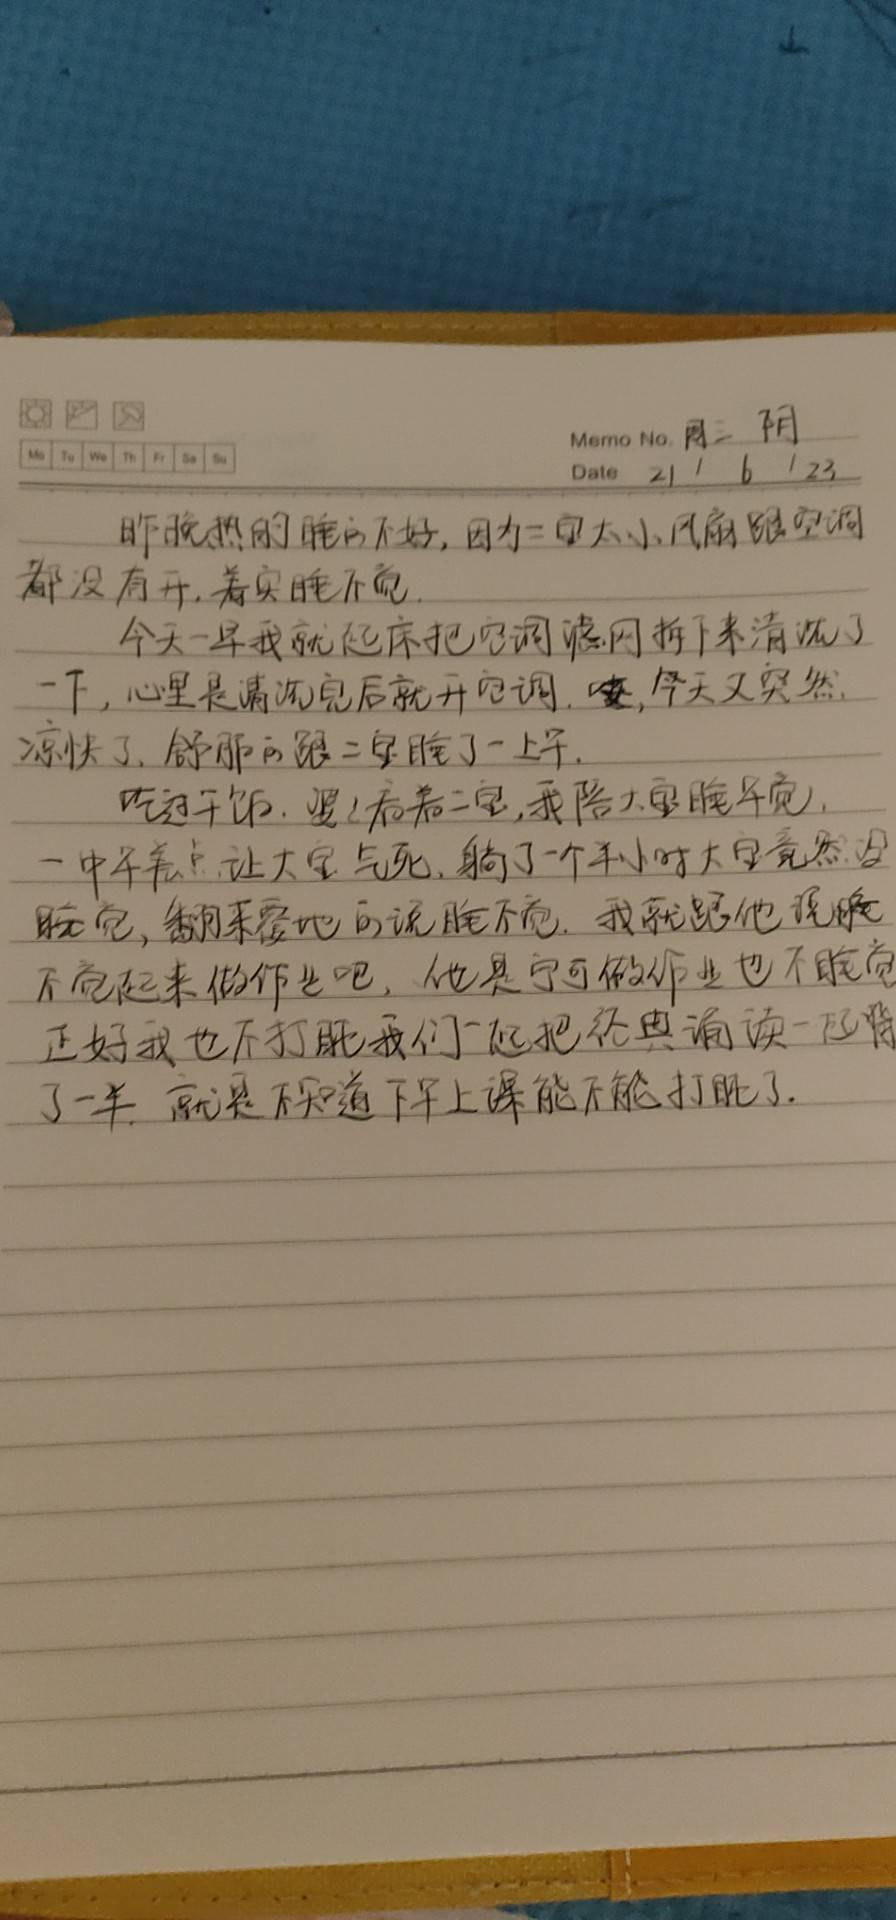 Memo No. 周三 阴
Mo Tu We Th Fr Sa Su
Date 21 / 6 / 23
昨晚热的睡的不好，因为二宝太小，风扇跟空调
都没有开，着实睡不觉．
今天一早我就起床把空调滤网拆下来清洗了
一下，心里是清洗完后就开空调．，今天又突然
凉快了，舒服的跟二宝睡了一上午．
吃过午饭．婆婆看着二宝，我陪大宝睡午觉，
一中午差点让大宝气死，躺了一个半小时大宝竟然没
睡觉，翻来覆地的说睡不觉．我就跟他说睡
不觉起来做作业吧，他是宁可做作业也不睡觉
正好我也不打盹我们一起把经典诵读一起背
了一半．就是不知道下午上课能不能打盹了．